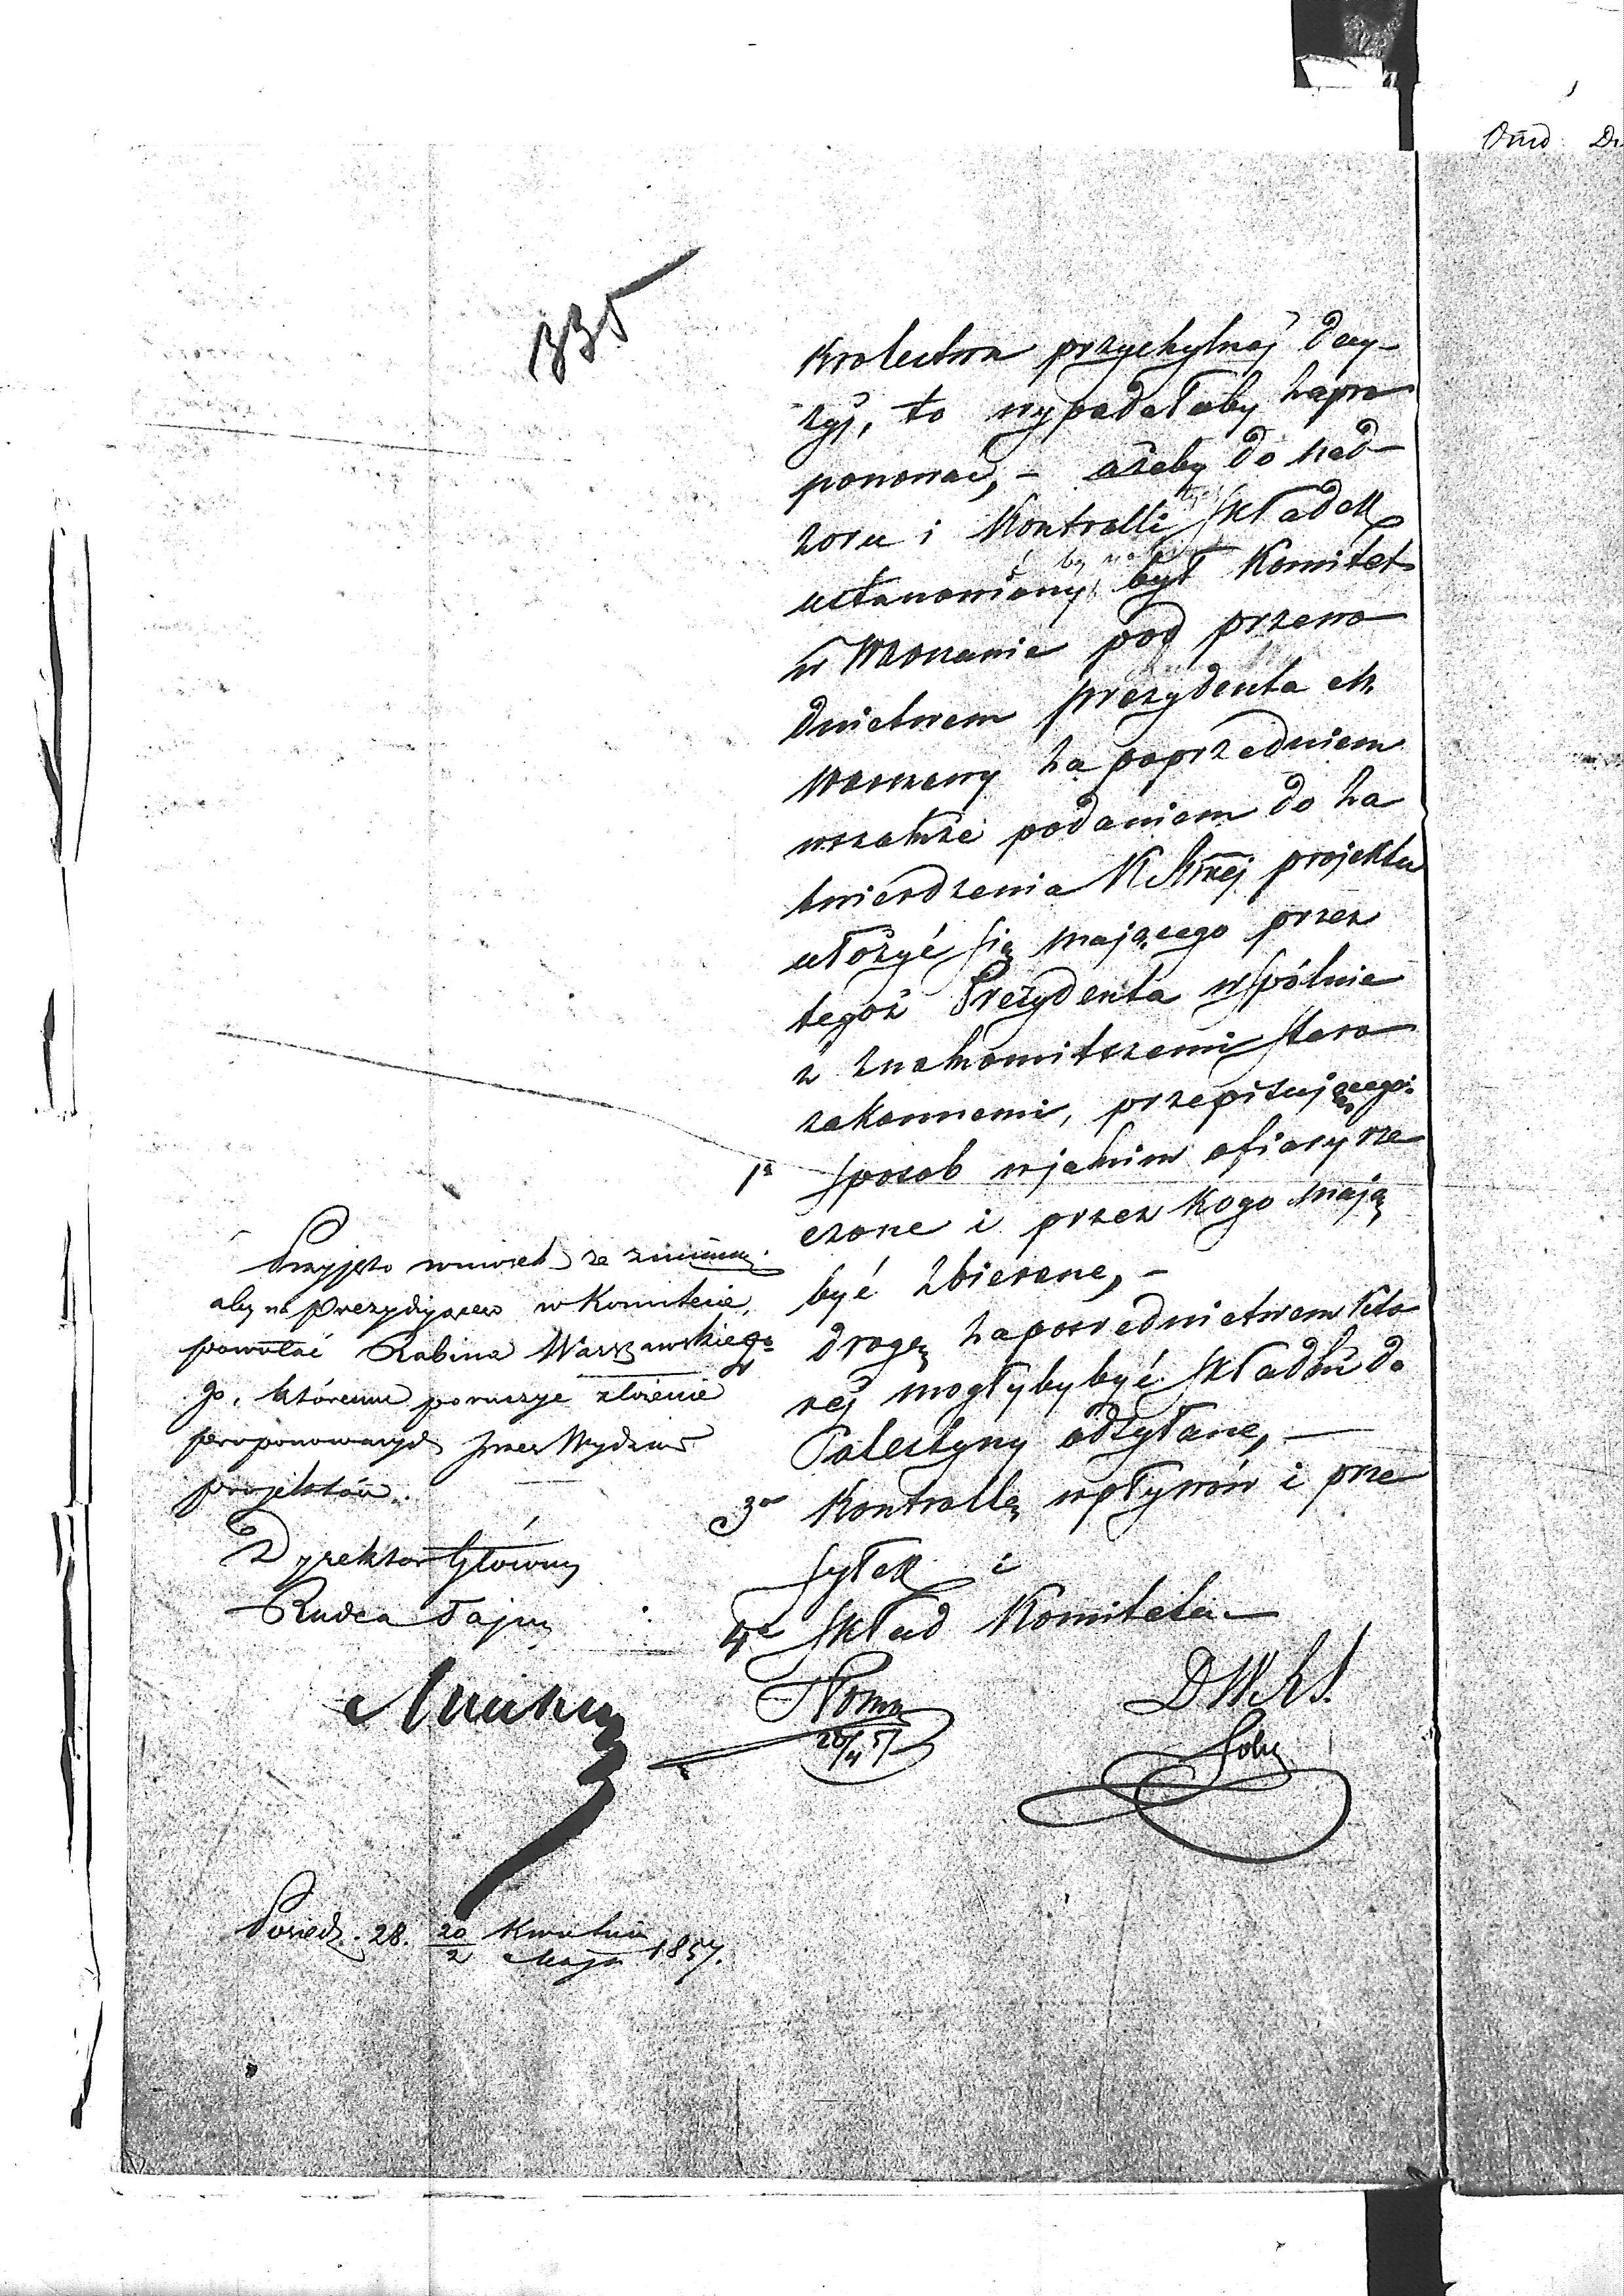 335
Krolestwa przychylnéj decy-
zyj, to wypadałoby zapro
ponować, - ażeby do nad-
zoru i Kontrolli składek
ustanowiony był Komitet
w Warszawie pod przewo
dnictwem Prezydenta M.
Warszawy za poprzedniem
wszakże podaniem do za
twierdzenia K. Rząej projektu
ułożyć się mającego przez
tegoż Prezydenta wspólnie
z znakomitszemi staro
zakonnemi, przepisującego:
1o sposob w jakim ofiary rze
czone i przez kogo mają
być zbierane, -
drogę za pośrednictwem któ
réj mogłyby być składki do
Palestyny odsyłane, -
3o Kontrollę wpływów i prze
syłek i
4o skład Komitetu. -
DWRS.
Przyjęto wniosek ze zmianą
aby na prezydującego w Komitecie,
powołać Rabina Warszawskiego
go, któremu poruczyć złożenie
proponowanych przez Wydział
projektów.
Dyrektor Główny
Radca Tajny
Posiedz. 28. 20/2 Kwietnia/Maja 1857.